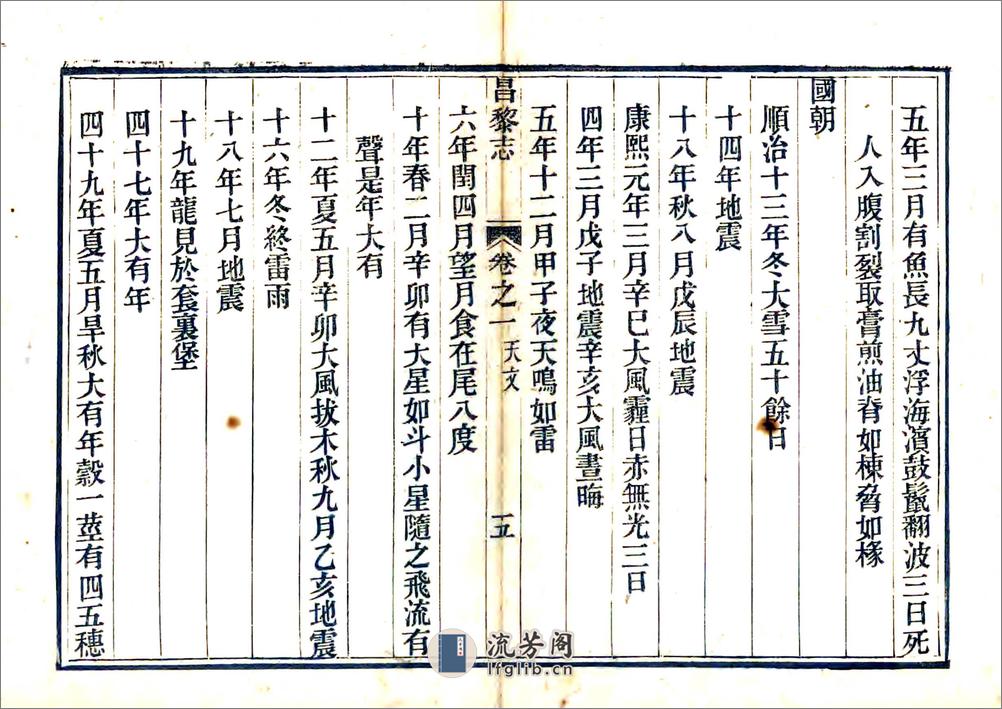 五年三月有魚長九丈浮海濱鼓鬣翻波三日死
人入腹割裂取膏煎油脊如棟脅如椽
國朝
順治十三年冬大雪五十餘日
十四年地震
十八年秋八月戊辰地震
康熙元年三月辛巳大風霾日赤無光三日
四年三月戊子地震辛亥大風晝晦
五年十二月甲子夜天鳴如雷
六年閏四月望月食在尾八度
昌黎志 卷之一 天文 五
十年春二月辛卯有大星如斗小星隨之飛流有
聲是年大有
十二年夏五月辛卯大風拔木秋九月乙亥地震
十六年冬終雷雨
十八年七月地震
十九年龍見於套裏堡
四十七年大有年
四十九年夏五月旱秋大有年穀一莖有四五穗
流芳阁
lfglib.cn